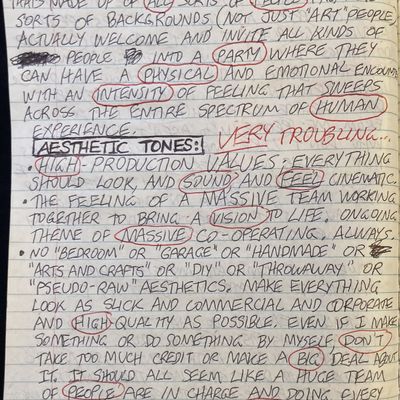 THAT'S MADE UP OF (ALL) SORTS OF PEOPLE
SORTS OF BACKGROUNDS (NOT JUST "ART" PEOPLE)
ACTUALLY WELCOME AND INVITE ALL KINDS OF
PEOPLE INTO A PARTY WHERE THEY
CAN HAVE A PHYSICAL AND EMOTIONAL ENCOUNTE
WITH AN INTENSITY OF FEELING THAT SWEEPS
ACROSS THE ENTIRE SPECTRUM OF HUMAN
EXPERIENCE. VERY TROUBLING...
AESTHETIC TONES:
• HIGH-PRODUCTION VALUES; EVERYTHING
SHOULD LOOK, AND SOUND AND FEEL CINEMATIC.
• THE FEELING OF A MASSIVE TEAM WORKING
TOGETHER TO BRING A VISION TO LIFE. ONGOING
THEME OF MASSIVE CO-OPERATING. ALWAYS.
• NO "BEDROOM" OR "GARAGE" OR "HANDMADE" OR
"ARTS AND CRAFTS" OR "DIY" OR "THROWAWAY" OR
"PSEUDO-RAW" AESTHETICS. MAKE EVERYTHING
LOOK AS SLICK AND COMMERCIAL AND CORPORATE
AND HIGH-QUALITY AS POSSIBLE. EVEN IF I MAKE
SOMETHING OR DO SOMETHING BY MYSELF, DON'T
TAKE TOO MUCH CREDIT OR MAKE A BIG DEAL ABOUT
IT. IT SHOULD ALL SEEM LIKE A HUGE TEAM
OF PEOPLE ARE IN CHARGE AND DOING EVERY